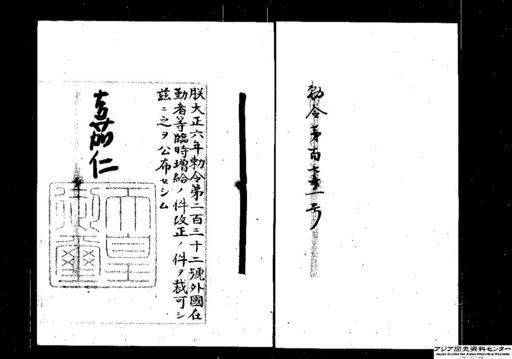 勅令第百七十一号
朕大正六年勅令第二百三十二號外國在
勤者等臨時増給ノ件改正ノ件ヲ裁可シ
茲ニ之ヲ公布セシム
嘉仁
天皇
御璽
アジア歴史資料センター
Japan Center for Asian Historical Records